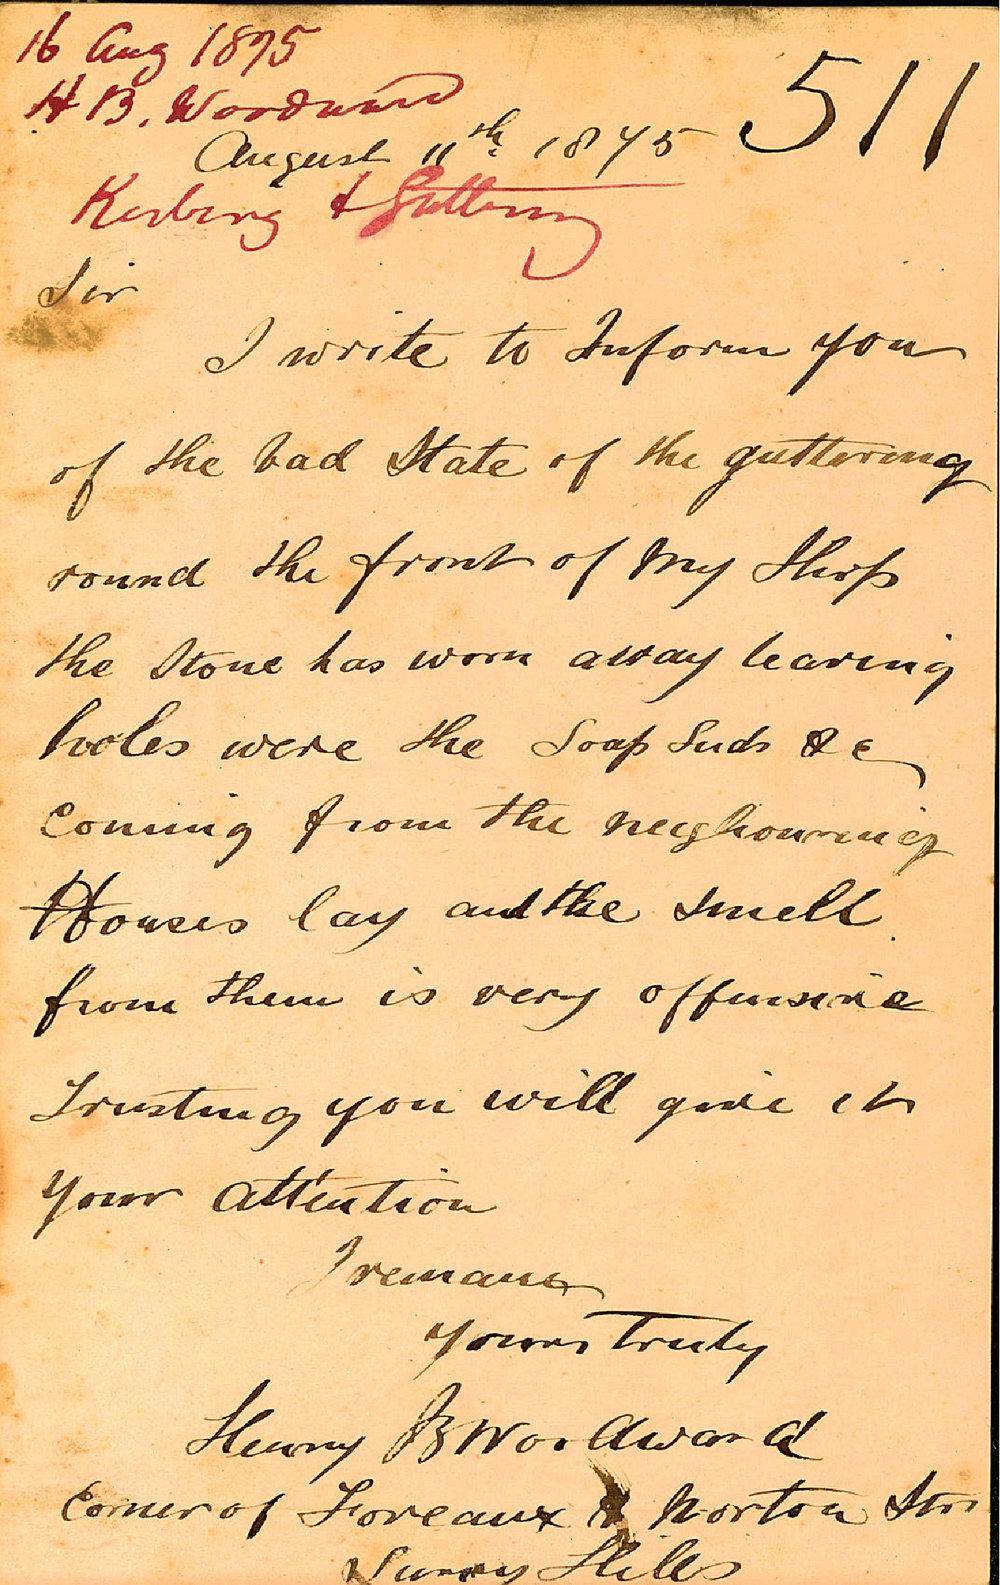 16 Aug 1875
H B. Woodward
511
August 11th. 1875
Kerbing & Guttering
Sir
I write to Inform you
of the bad State of the guttering
round the front of My Shop
the Stone has worn away leaving
holes were the Soap Suds & c
coming from the neighouring
Houses lay and the smell
from them is very offensive
Trusting you will give it
your attention
I remane
yours Truly
Henry B Woodward
Corner of Foveaux & Norton Strs
Surry Hills